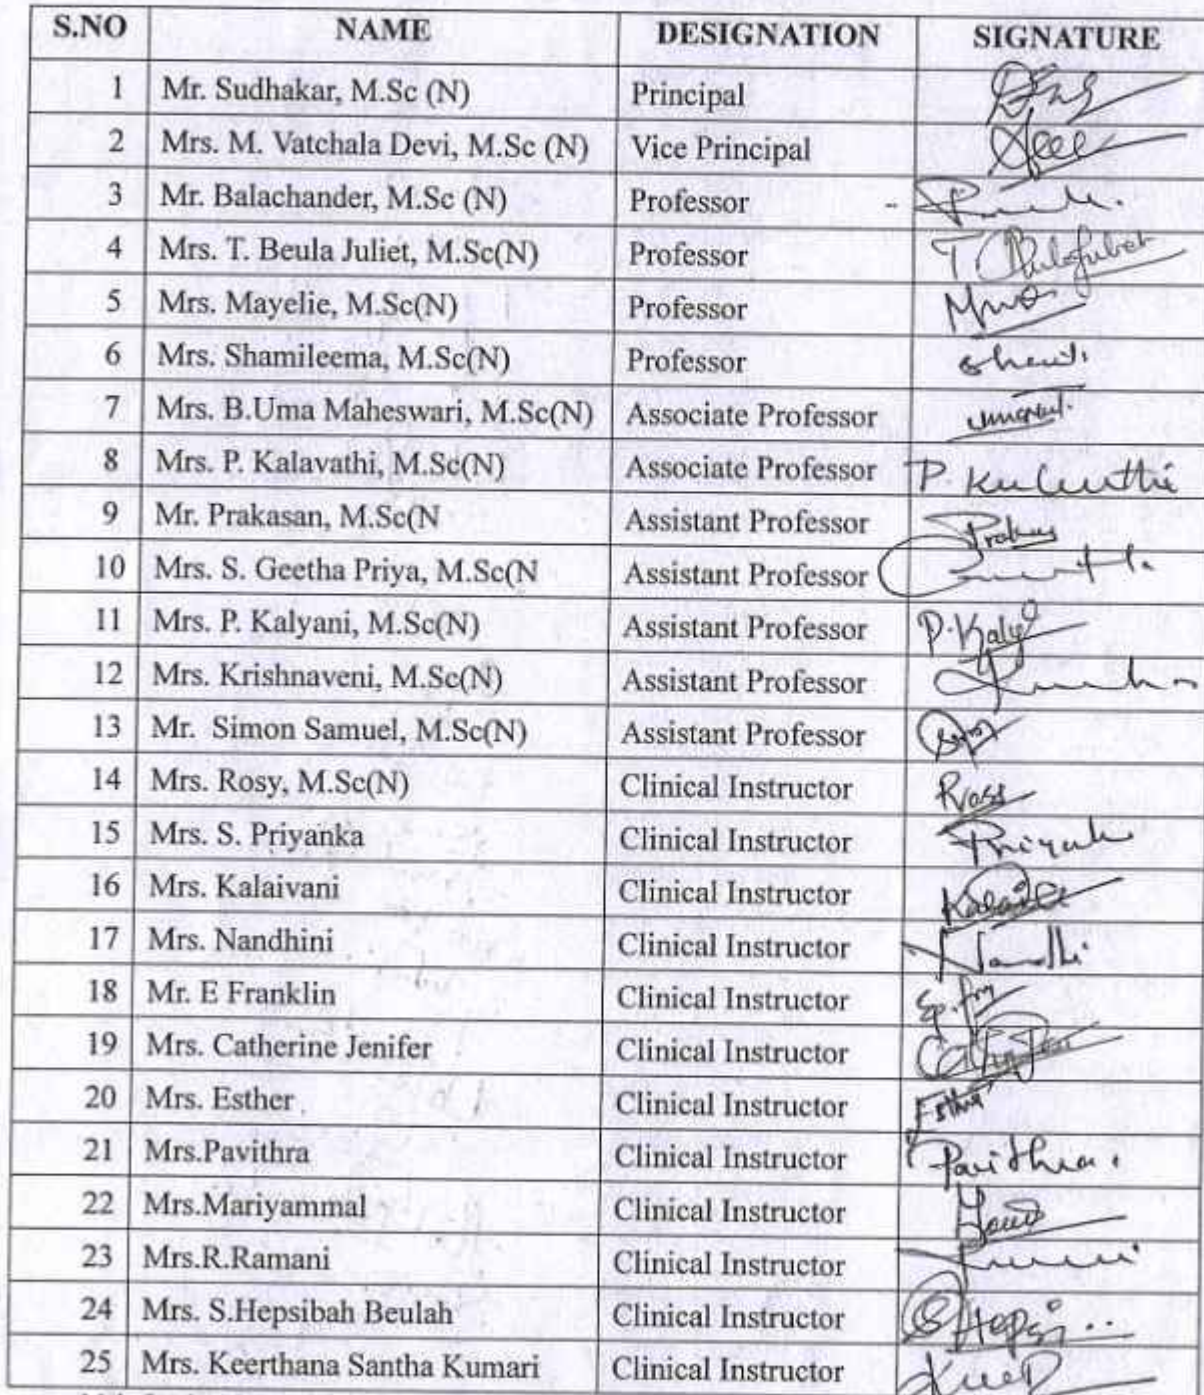 S.NO NAME DESIGNATION SIGNATURE
1 Mr. Sudhakar, M.Sc (N) Principal
2 Mrs. M. Vatchala Devi, M.Sc (N) Vice Principal
3 Mr. Balachander, M.Sc (N) Professor
4 Mrs. T. Beula Juliet, M.Sc(N) Professor
5 Mrs. Mayelie, M.Sc(N) Professor
6 Mrs. Shamileema, M.Sc(N) Professor
7 Mrs. B.Uma Maheswari, M.Sc(N) Associate Professor
8 Mrs. P. Kalavathi, M.Sc(N) Associate Professor
9 Mr. Prakasan, M.Sc(N Assistant Professor
10 Mrs. S. Geetha Priya, M.Sc(N Assistant Professor
11 Mrs. P. Kalyani, M.Sc(N) Assistant Professor
12 Mrs. Krishnaveni, M.Sc(N) Assistant Professor
13 Mr. Simon Samuel, M.Sc(N) Assistant Professor
14 Mrs. Rosy, M.Sc(N) Clinical Instructor
15 Mrs. S. Priyanka Clinical Instructor
16 Mrs. Kalaivani Clinical Instructor
17 Mrs. Nandhini Clinical Instructor
18 Mr. E Franklin Clinical Instructor
19 Mrs. Catherine Jenifer Clinical Instructor
20 Mrs. Esther Clinical Instructor
21 Mrs.Pavithra Clinical Instructor Pavithra.
22 Mrs.Mariyammal Clinical Instructor
23 Mrs.R.Ramani Clinical Instructor
24 Mrs. S.Hepsibah Beulah Clinical Instructor
25 Mrs. Keerthana Santha Kumari Clinical Instructor